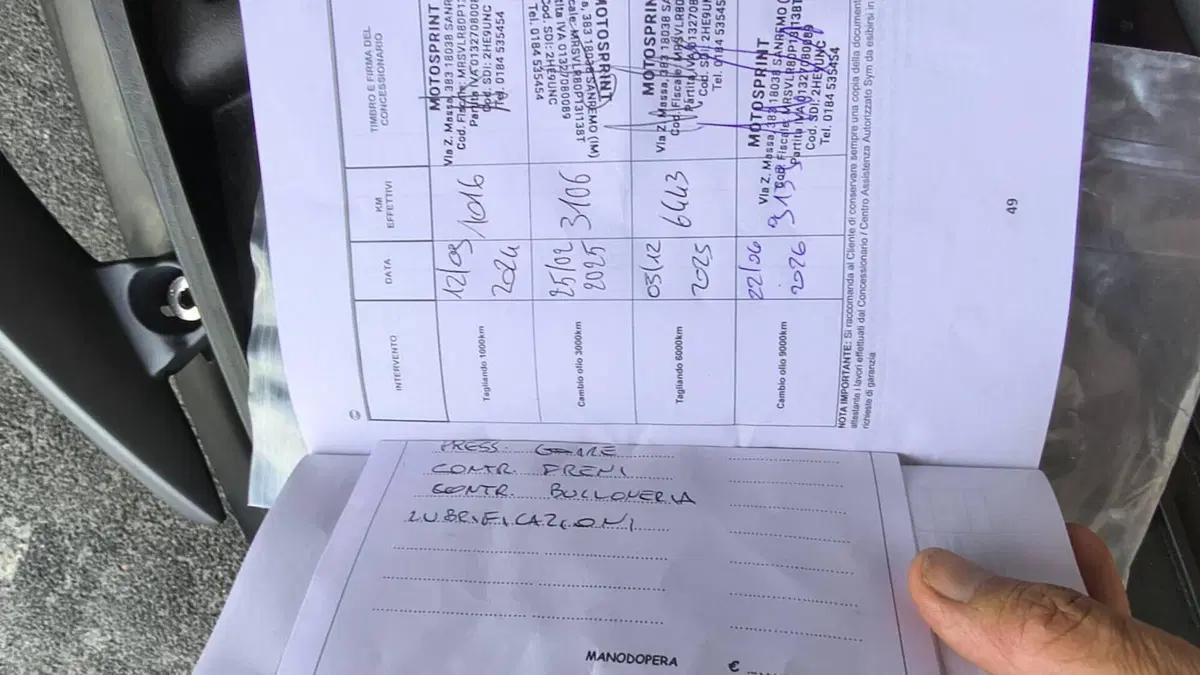 INTERVENTO
DATA
KM
EFFETTIVI
TIMBRO E FIRMA DEL
CONCESSIONARIO
Tagliando 1000km
12/09
2024
1016
MOTOSPRINT
Via Z. Massa, 383 18038 SANR
Cod. Fiscale: MRSVLR80P1
Partita IVA 0132708008
Cod. SDI: 2HE9UNC
Tel. 0184 535454
Cambio olio 3000km
25/02
2025
3106
MOTOSPRINT
a, 383 18038 SANREMO (IM)
cale: MRSVLR80P13I138T
tita IVA 01327080089
Cod. SDI: 2HE9UNC
Tel. 0184 535454
Tagliando 6000km
03/12
2025
6443
MOTOSPRINT
Via Z. Massa, 383 18038 SA
Cod. Fiscale: MRSVLR80
Partita IVA 013270
Cod. SDI: 2HE9UN
Tel. 0184 53545
Cambio olio 9000km
22/06
2026
MOTOSPRINT
Via Z. Massa, 383 18038 SANREMO (
Cod. Fiscale: MRSVLR80P13I138T
Partita IVA 01327080089
Cod. SDI: 2HE9UNC
Tel. 0184 535454
NOTA IMPORTANTE: Si raccomanda al Cliente di conservare sempre una copia della document
attestante i lavori effettuati dal Concessionario / Centro Assistenza Autorizzato Sym da esibirsi in
richieste di garanzia
49
PRESS. GOMME
CONTR. FRENI
CONTR. BULLONERIA
LUBRIFICAZIONI
MANODOPERA
€